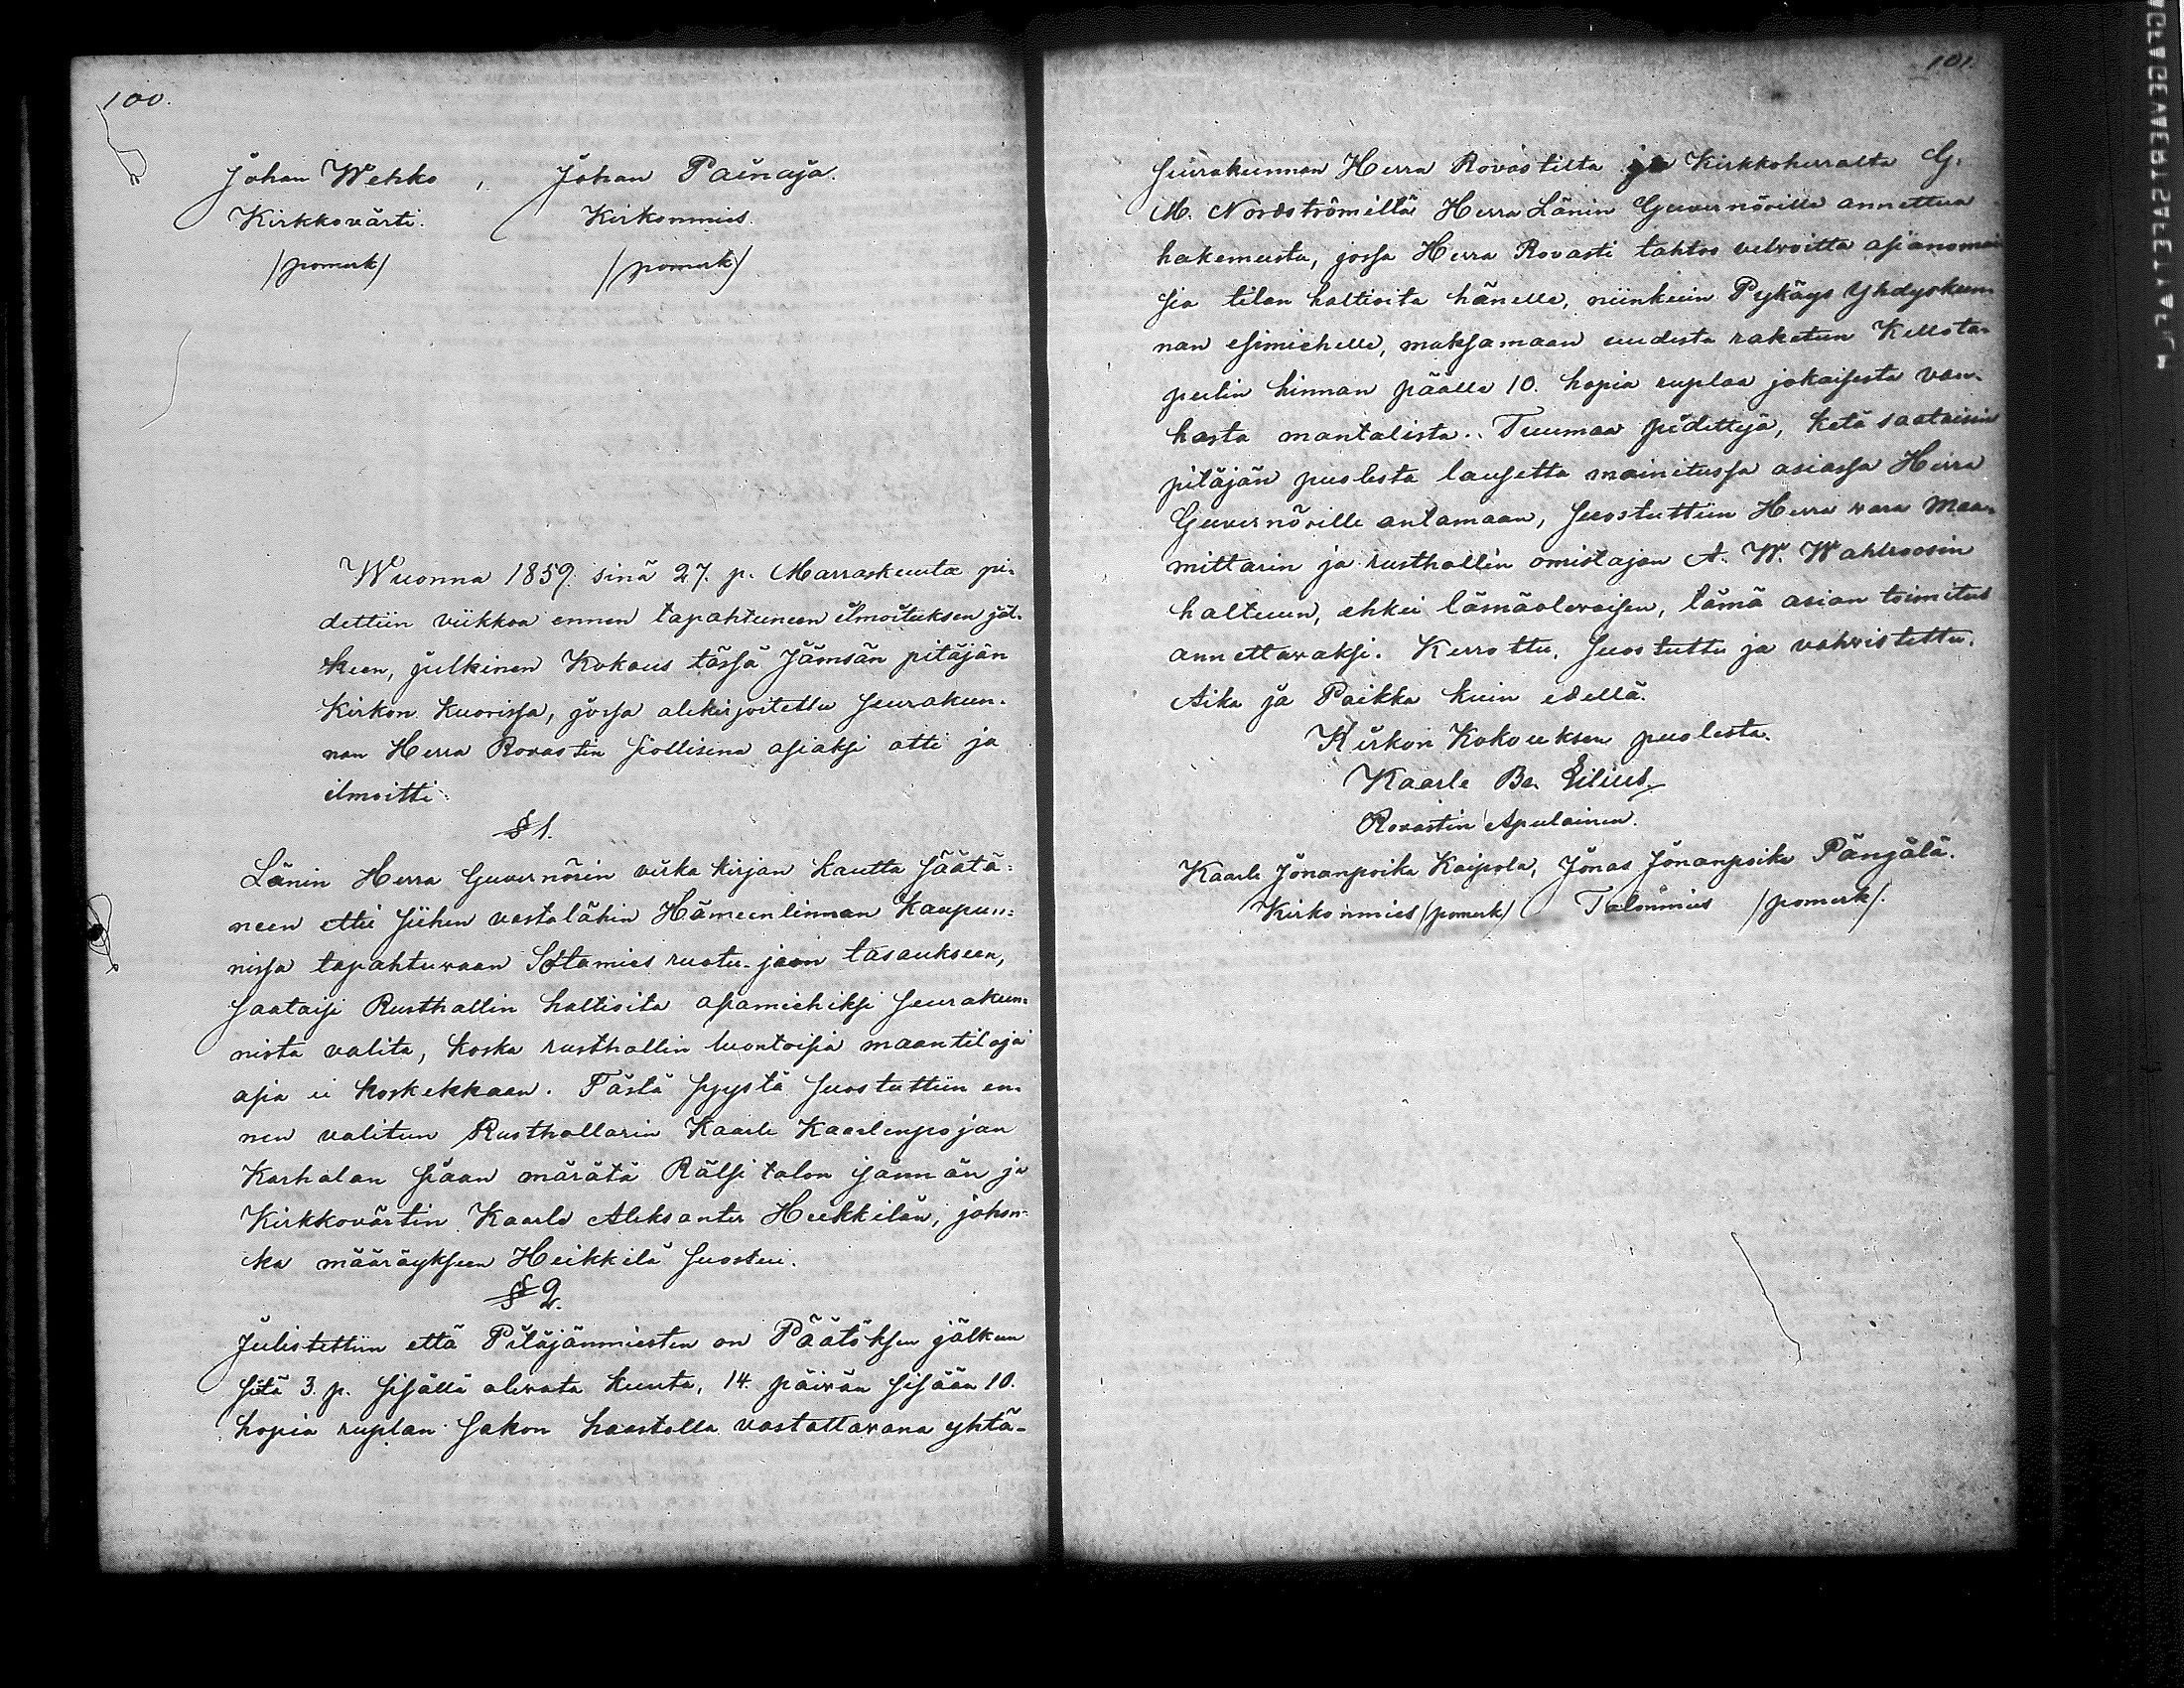 100.
Johan Wehko , Johan Painaja.
Kirkkovärti. Kirkonmies.
/pomerk/ /pomerk/
Wuonna 1859. sinä 27. p. Marraskuuta pi-
dettiin viikkoa ennen tapahtuneen ilmoituksen jäl-
keen, julkinen Kokous tässä Jämsän pitäjän
Kirkon Kuorissa, jossa alekirjoitettu seurakun-
nan Herra Rovastin siallisena asiaksi otti ja
ilmoitti:
§ 1.
Länin Herra Guvernörin virka kirjan kautta säätä-
neen ettei siihen vastalähin Hämeenlinnan Kaupun-
nissa tapahtuwaan Sotamies ruotu-jaon tasaukseen,
saataisi Rusthollin haltioita asiamiehiksi seurakun-
nista valita, koska rusthollin luontoisia maantiloja
asia ei koskekkaan. Tästä syystä suostuttiin en-
nen valitun Rusthollarin Kaarle Kaarlenpojan
Karhalan siaan märätä Rälsi talon isännän ja
Kirkkovärtin Kaarle Aleksanter Heikkilän, johon-
ka määräykseen Heikkilä suostui.
§ 2.
Julistettiin että Pitäjänmiesten on Päätöksen jälkeen
sitä 3. p. sisällä olewata kuuta, 14. päiwän sisään 10.
hopia ruplan sakon haastolla vastattavana yhtä-
101.
seurakunnan Herra Rovastilta ja Kirkkoherralta G.
M. Nordströmillä Herra Länin Guvernörille annettua
hakemusta, jossa Herra Rovasti tahtoo velvoitta asianomai
sia tilan haltioita hänelle, niinkuin Pykäys Yhdyskun-
nan esimiehelle, maksamaan uudesta raketun Kellota-
pulin hinnan päälle 10. hopia ruplaa jokaisesta van-
hasta mantalista. Tuumaa pidettyä, ketä saataisiin
pitäjän puolesta lausetta mainitussa asiassa Herra
Guvernörille antamaan, suostuttiin Herra vara Maa-
mittarin ja rusthollin omistajan A. W. Wahlroosin
haltuun, ehkei läsnäolevaisen, tämä asian toimitus
annettavaksi. Kerrottu, suostuttu ja vahvistettu.
Aika ja Paikka kuin edellä.
Kirkon Kokouksen puolesta.
Kaarle Ba. Lilius.
Rovastin Apulainen.
Kaarle Jonanpoika Kaipola, Jonas Jonanpoika Pänjälä.
Kirkonmies /pomerk/ Talonmies /pomerk/.